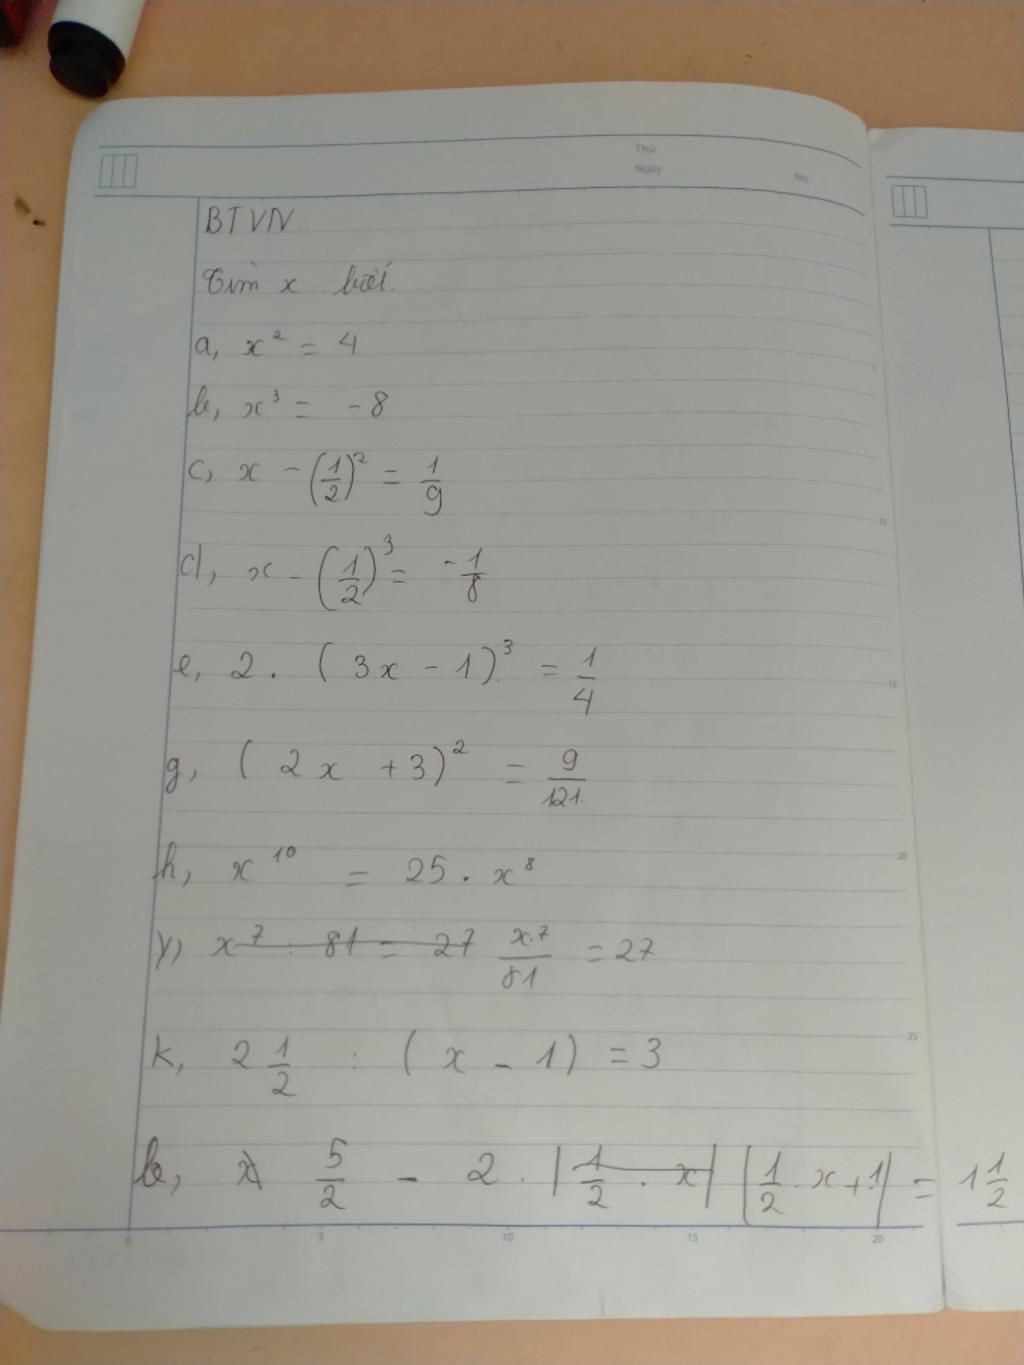 Thứ
Ngày No.
BTVN.
Tìm x biết.
a, x² = 4
b, x³ = -8
c, x - (1/2)² = 1/9
d, x - (1/2)³ = -1/8
e, 2 . (3x - 1)³ = 1/4
g, (2x + 3)² = 9/121.
h, x¹⁰ = 25 . x⁸
y, x⁷ : 81 = 27 x.⁷/81 = 27
k, 2 1/2 : (x - 1) = 3
5/2 - 2 . |1/2 . x| |1/2 . x + 1| = 1 1/2
15
20
25
0 5 10 15 20